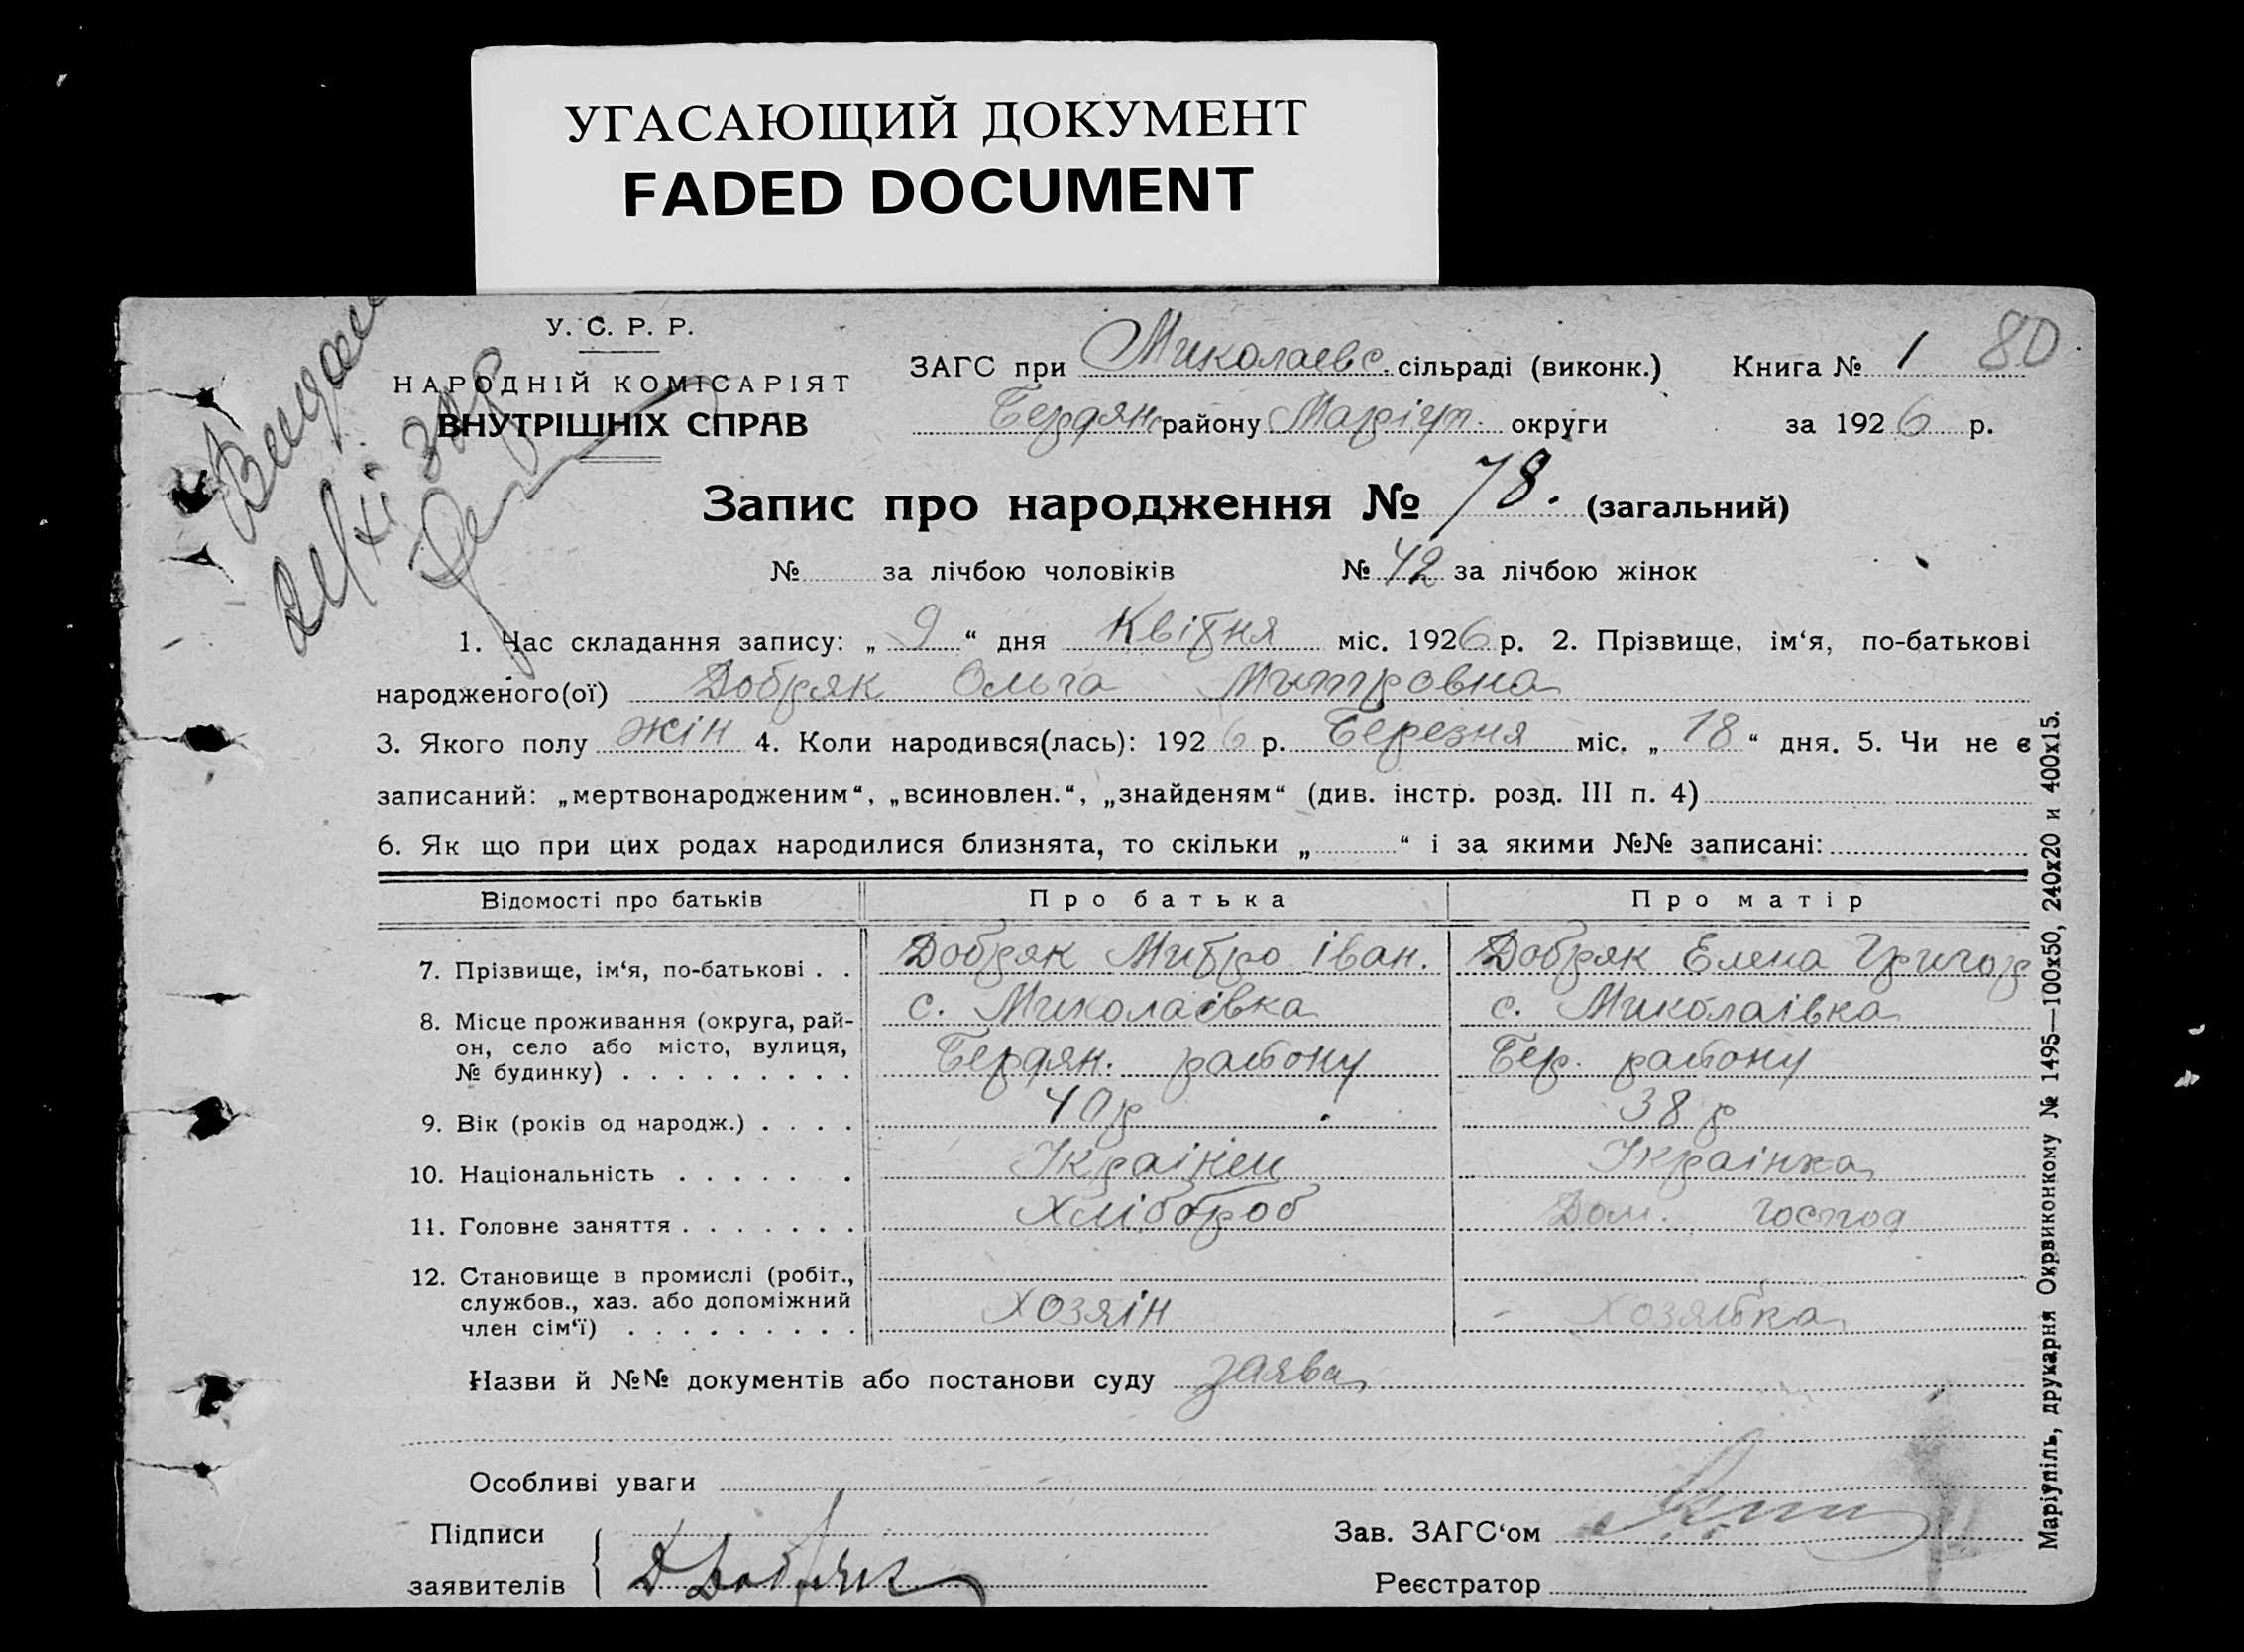 УГАСАЮЩИЙ ДОКУМЕНТ
FADED DOCUMENT
У. С. Р. Р.
НАРОДНІЙ КОМІСАРІЯТ
ВНУТРІШНІХ СПРАВ
ЗАГС при Миколаевс. сільраді (виконк.) Книга № 1 80
Бердян району Маріуп. округи за 1926 р.
Запис про народження № 78. (загальний)
№ за лічбою чоловіків № 42 за лічбою жінок
1. Час складання запису: „ 9 “ дня Квітня міс. 1926 р. 2. Прізвище, ім‘я, по-батькові
народженого(ої) Добряк Ольга Митровна
3. Якого полу жін 4. Коли народився(лась): 1926 р. Березня міс. „ 18 “ дня. 5. Чи не є
записаний: „мертвонародженим“, „всиновлен.“, „знайденям“ (див. інстр. розд. III п. 4)
6. Як що при цих родах народилися близнята, то скільки „ “ і за якими №№ записані:
Відомості про батьків Про батька Про матір
7. Прізвище, ім‘я, по-батькові . . Добряк Митро Іван. Добряк Елена Григор
8. Місце проживання (округа, рай-
он, село або місто, вулиця,
№ будинку) . . . . . . . . .
с. Миколаівка с. Миколаівка
Бердян. району Бер. району
9. Вік (років од народж.) . . . . 40 р 38 р
10. Національність . . . . . . Украінец Украінка
11. Головне заняття . . . . . . . Хлібороб Дом. господ
12. Становище в промислі (робіт.,
службов., хаз. або допоміжний
член сім‘ї) . . . . . . . . .
хозяін хозяйка
Назви й №№ документів або постанови суду заява
Особливі уваги
Підписи
заявителів
Д Добряк
Зав. ЗАГС‘ом
Реєстратор
Маріупіль, друкарня Окрвиконкому № 1495—100x50, 240x20 и 400x15.